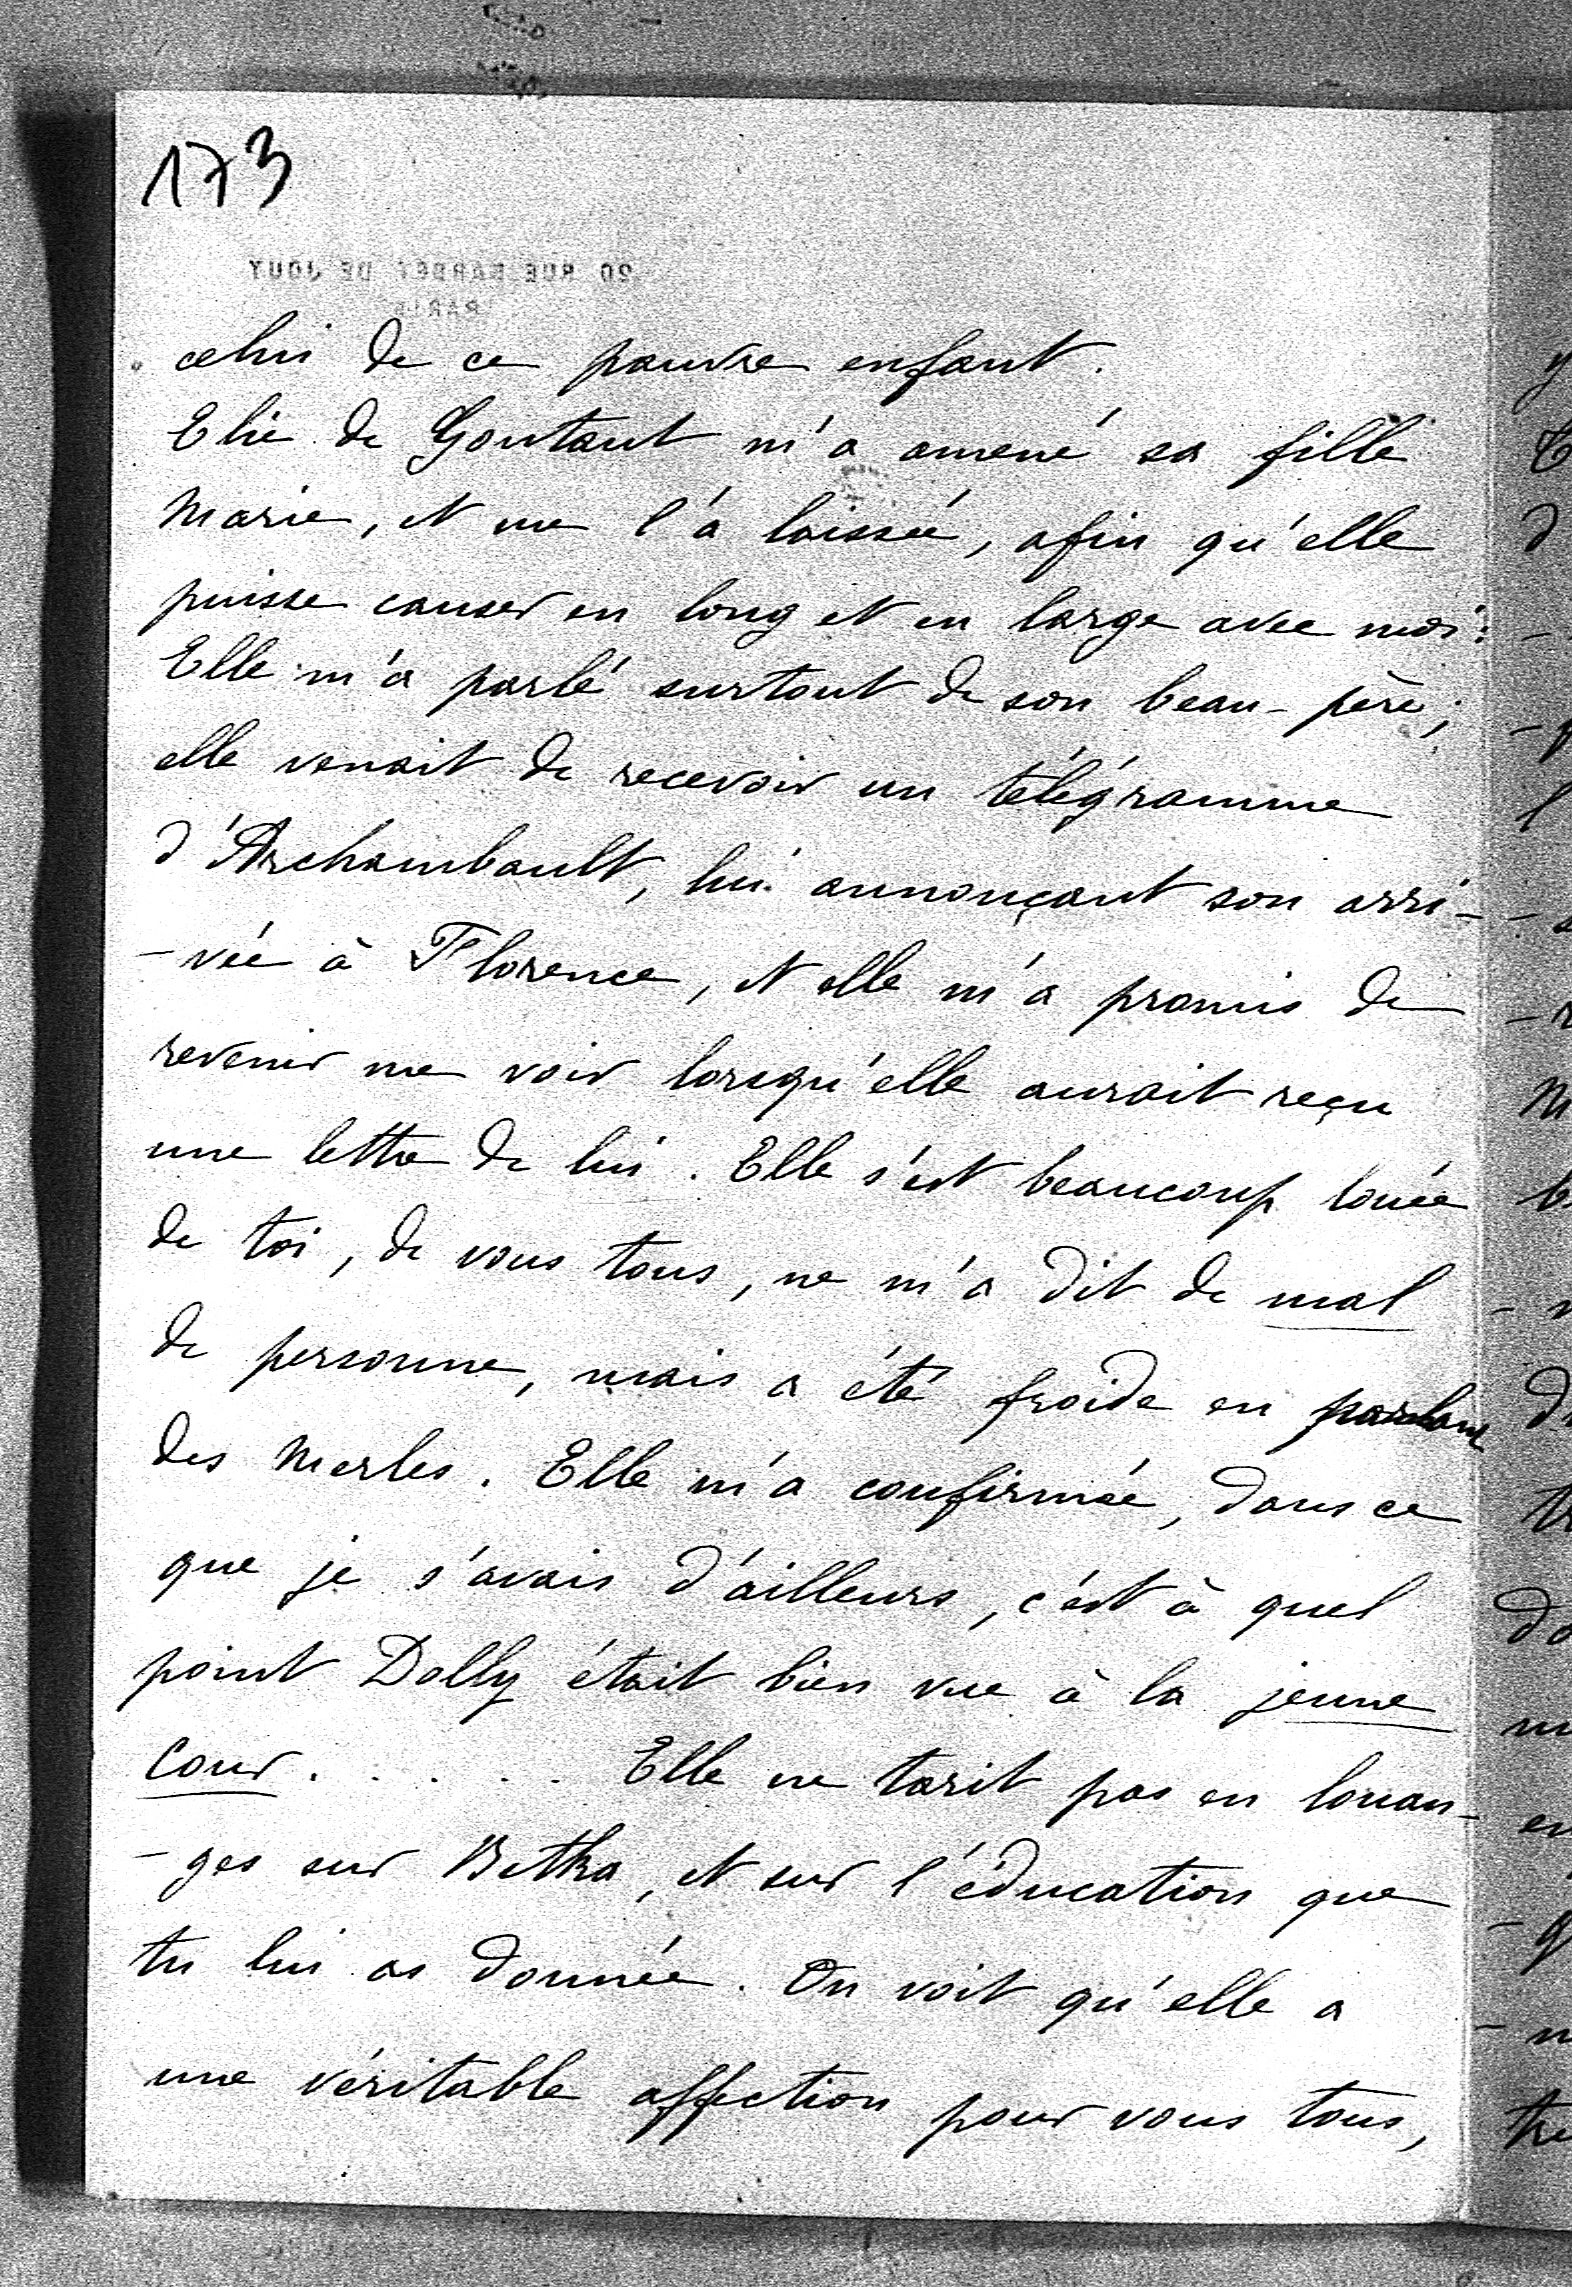 173
20 RUE BARBET DE JOUY
PARIS
celui de ce pauvre enfant.
Elie de Gontaut m'a amené sa fille
Marie, et me l'a laissée, afin qu'elle
puisse causer en long et en large avec moi:
Elle m'a parlé surtout de son beau-père;
elle venait de recevoir un télégramme
d'Archambault, lui annonçant son arri-
-vée à Florence, et elle m'a promis de
revenir me voir lorsqu'elle aurait reçu
une lettre de lui. Elle s'est beaucoup louée
de toi, de vous tous, ne m'a dit de mal
de personne, mais a été froide en parlant
des Merles. Elle m'a confirmée, dans ce
que je s'avais d'ailleurs, c'est à quel
point Dolly était bien vue à la jeune
Cour. . . . . . Elle ne tarit pas en louan-
-ges sur Betka, et sur l'éducation que
tu lui as donnée. On voit qu'elle a
une véritable affection pour vous tous,